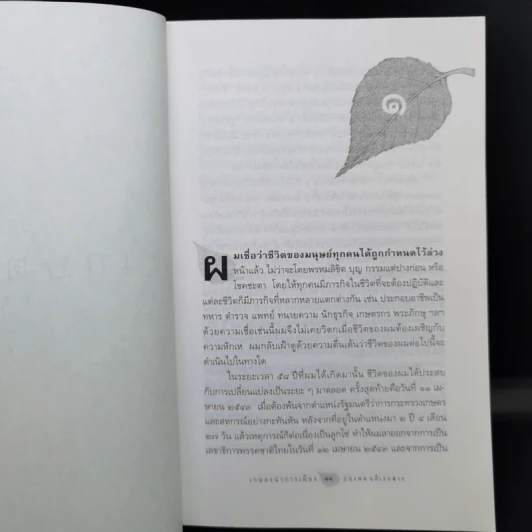 ๑
ผมเชื่อว่าชีวิตของมนุษย์ทุกคนได้ถูกกำหนดไว้ล่วง
หน้าแล้ว ไม่ว่าจะโดยพรหมลิขิต บุญ กรรมแต่ปางก่อน หรือ
โชคชะตา โดยให้ทุกคนมีภารกิจในชีวิตที่จะต้องปฏิบัติและ
แต่ละชีวิตก็มีภารกิจที่หลากหลายแตกต่างกัน เช่น ประกอบอาชีพเป็น
ทหาร ตำรวจ แพทย์ ทนายความ นักธุรกิจ เกษตรกร พระภิกษุ ฯลฯ
ด้วยความเชื่อเช่นนี้ผมจึงไม่เคยวิตกเมื่อชีวิตของผมต้องเผชิญกับ
ความหักเห ผมกลับเฝ้าดูด้วยความตื่นเต้นว่าชีวิตของผมต่อไปนี้จะ
ดำเนินไปในทางใด
ในระยะเวลา ๕๘ ปีที่ผมได้เกิดมานั้น ชีวิตของผมได้ประสบ
กับการเปลี่ยนแปลงเป็นระยะ ๆ มาตลอด ครั้งสุดท้ายคือวันที่ ๑๑ เม-
ษายน ๒๕๔๓ เมื่อต้องพ้นจากตำแหน่งรัฐมนตรีว่าการกระทรวงเกษตร
และสหกรณ์อย่างกะทันหัน หลังจากที่อยู่ในตำแหน่งมา ๒ ปี ๔ เดือน
๒๗ วัน แล้วเหตุการณ์ก็ต่อเนื่องเป็นลูกโซ่ ทำให้ผมลาออกจากการเป็น
เลขาธิการพรรคชาติไทยในวันที่ ๑๒ เมษายน ๒๕๔๓ และจากการเป็น
เกษตรนำการเมือง ๑๑ ปองพล อดิเรกสาร